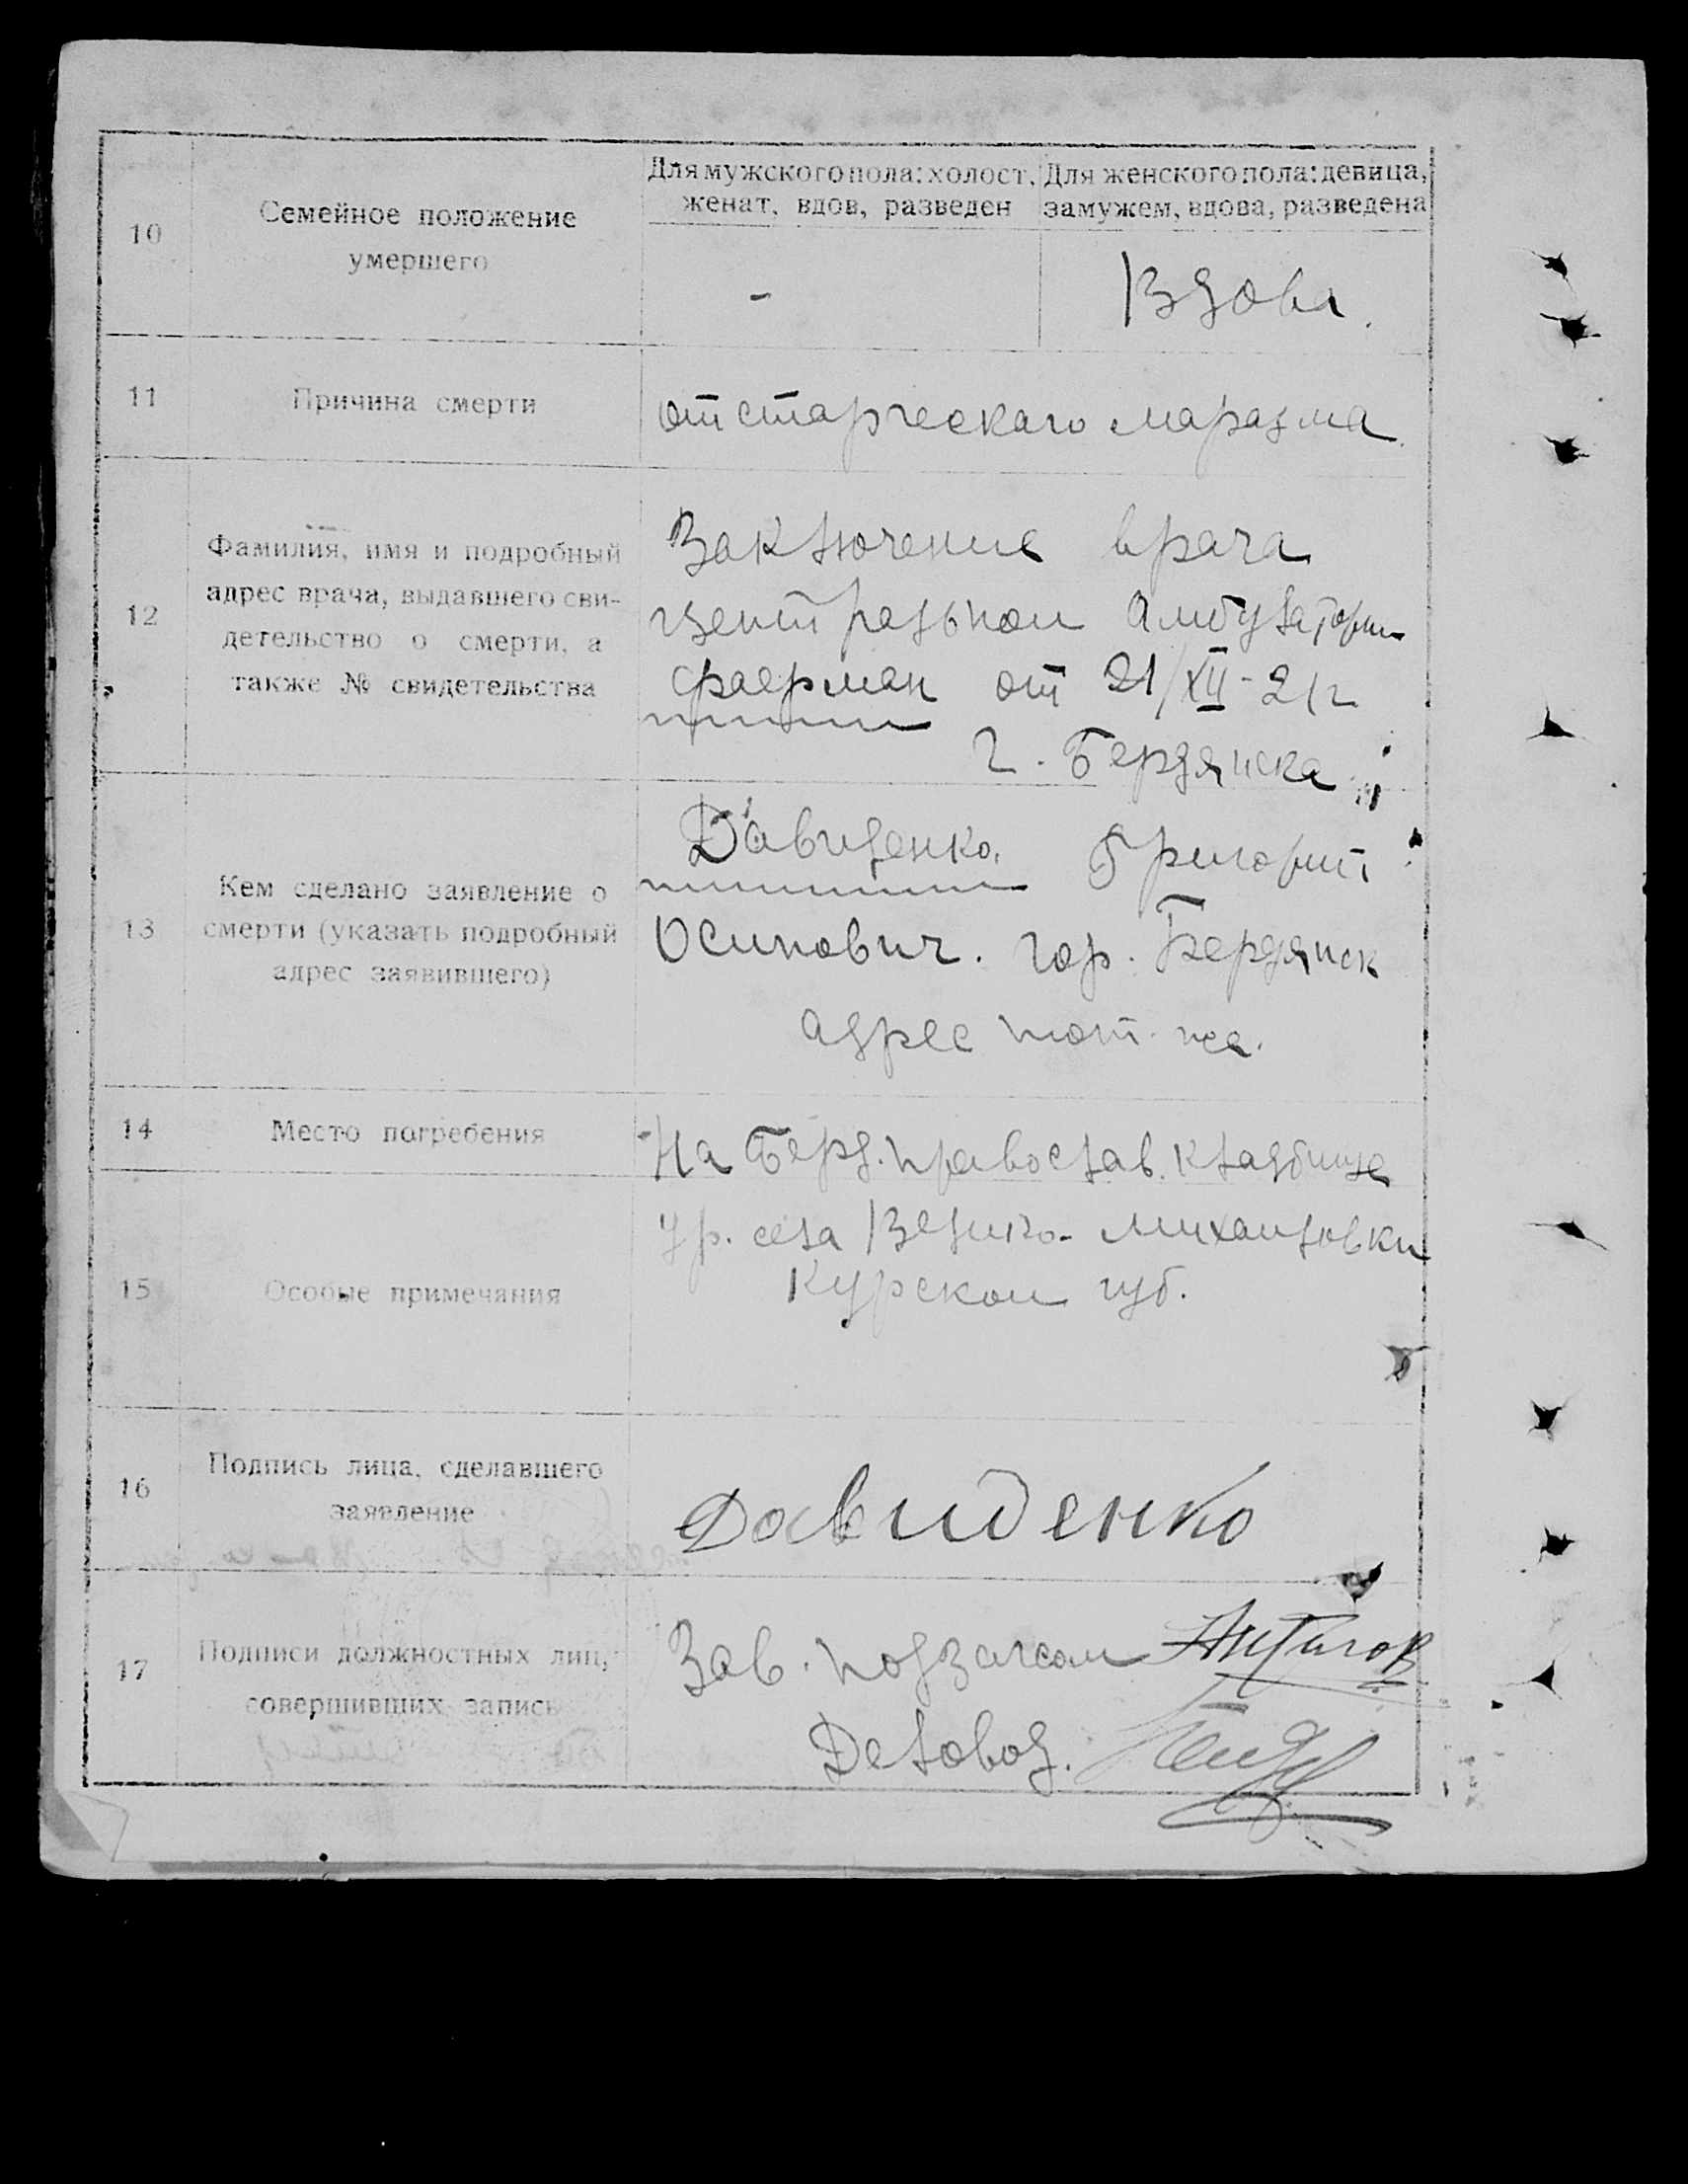 10
Семейное положение
умершего
Для мужского пола: холост, женат, вдов, разведен
Для женского пола: девица, замужем, вдова, разведена
-
Вдова.
11
Причина смерти
от старческаго маразма.
12
Фамилия, имя и подробный
адрес врача, выдавшего сви-
детельство о смерти, а
также № свидетельства
Заключение врача
центральной Амбулатории
Фаерман от 21/XII-21г
г. Бердянска
13
Кем сделано заявление о
смерти (указать подробный
адрес заявившего)
Давиденко. Григорий
Осипович. гор. Бердянск
адрес тот-же.
14
Место погребения
На Берд. православ. кладбище
15
Особые примечания
гр. села Велико-Михайловки
Курской губ.
16
Подпись лица, сделавшего
заявление
Давиденко
17
Подписи должностных лиц,
совершивших запись
Зав. подзагсом
Деловод.